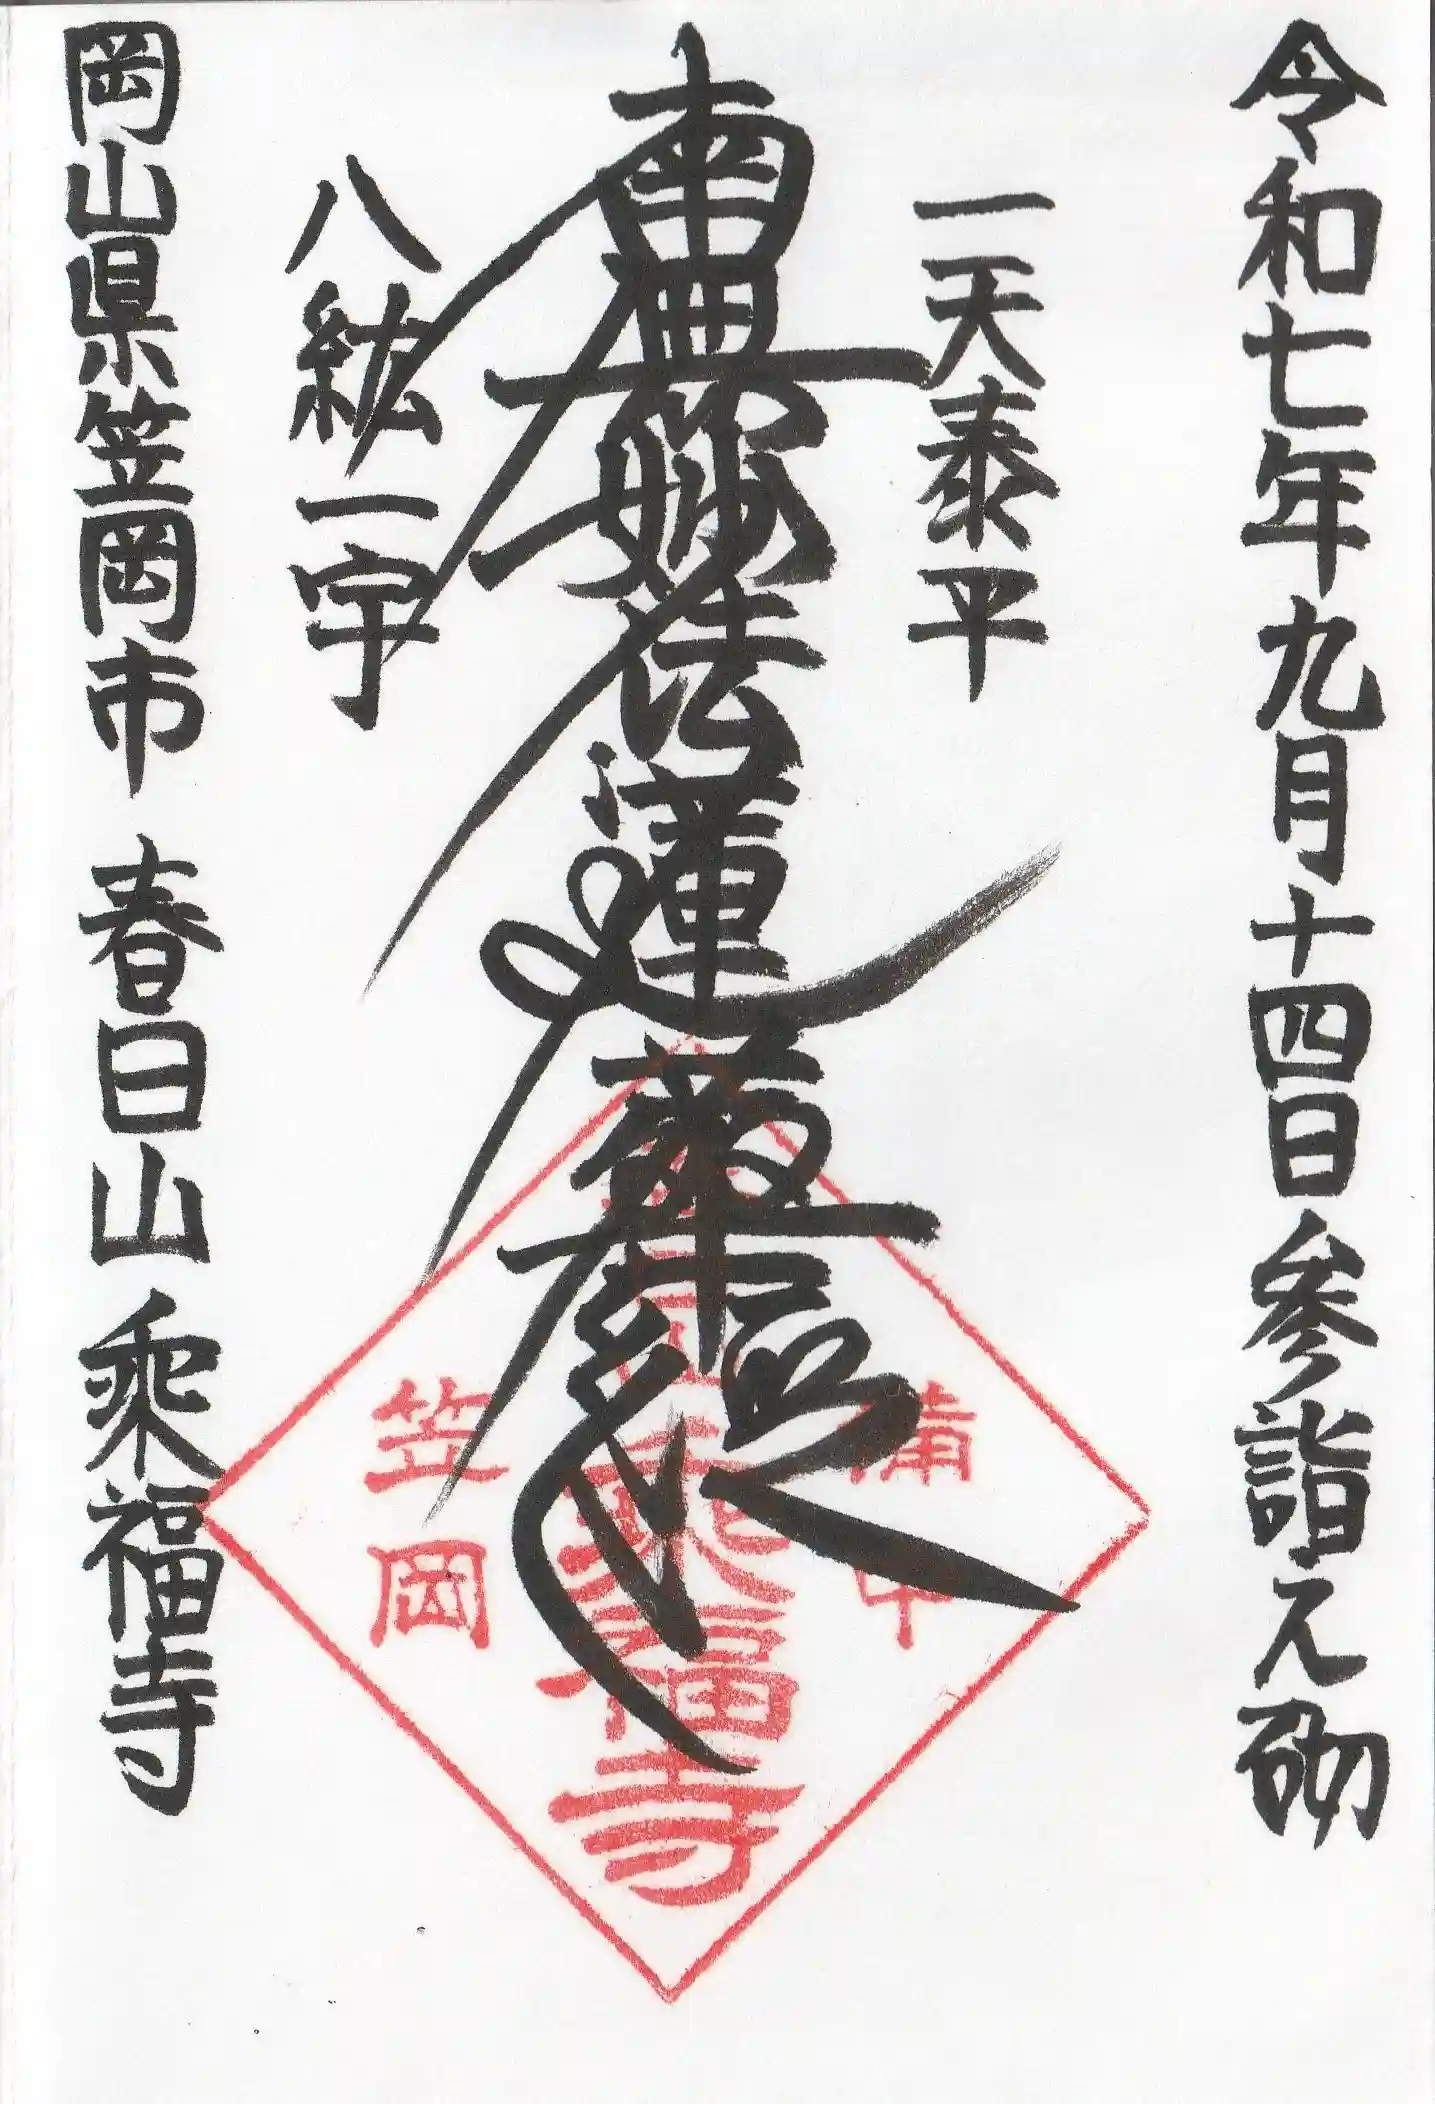 令和七年九月十四日参詣之砌
一天泰平
南無妙法蓮華経
八紘一宇
岡山県笠岡市 春日山 乗福寺
備中
春日山乗福寺
笠岡